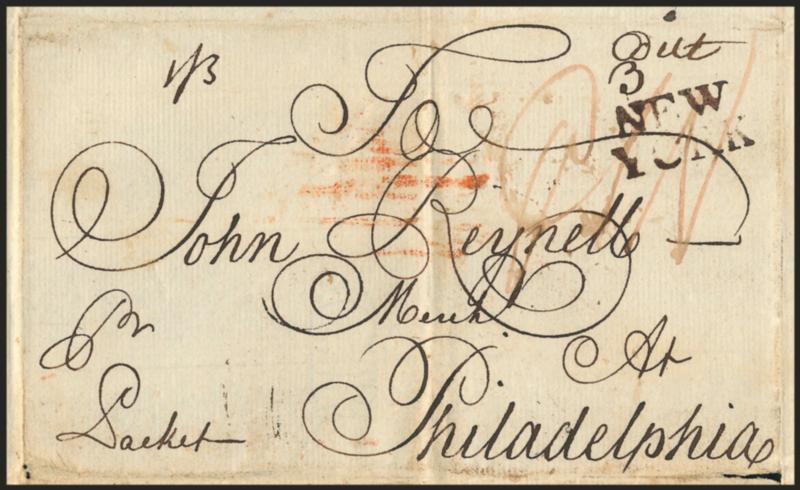 1/3
To
John Reynell
Merch.
At
Philadelphia
Pr
Packet
3
NEW
YORK